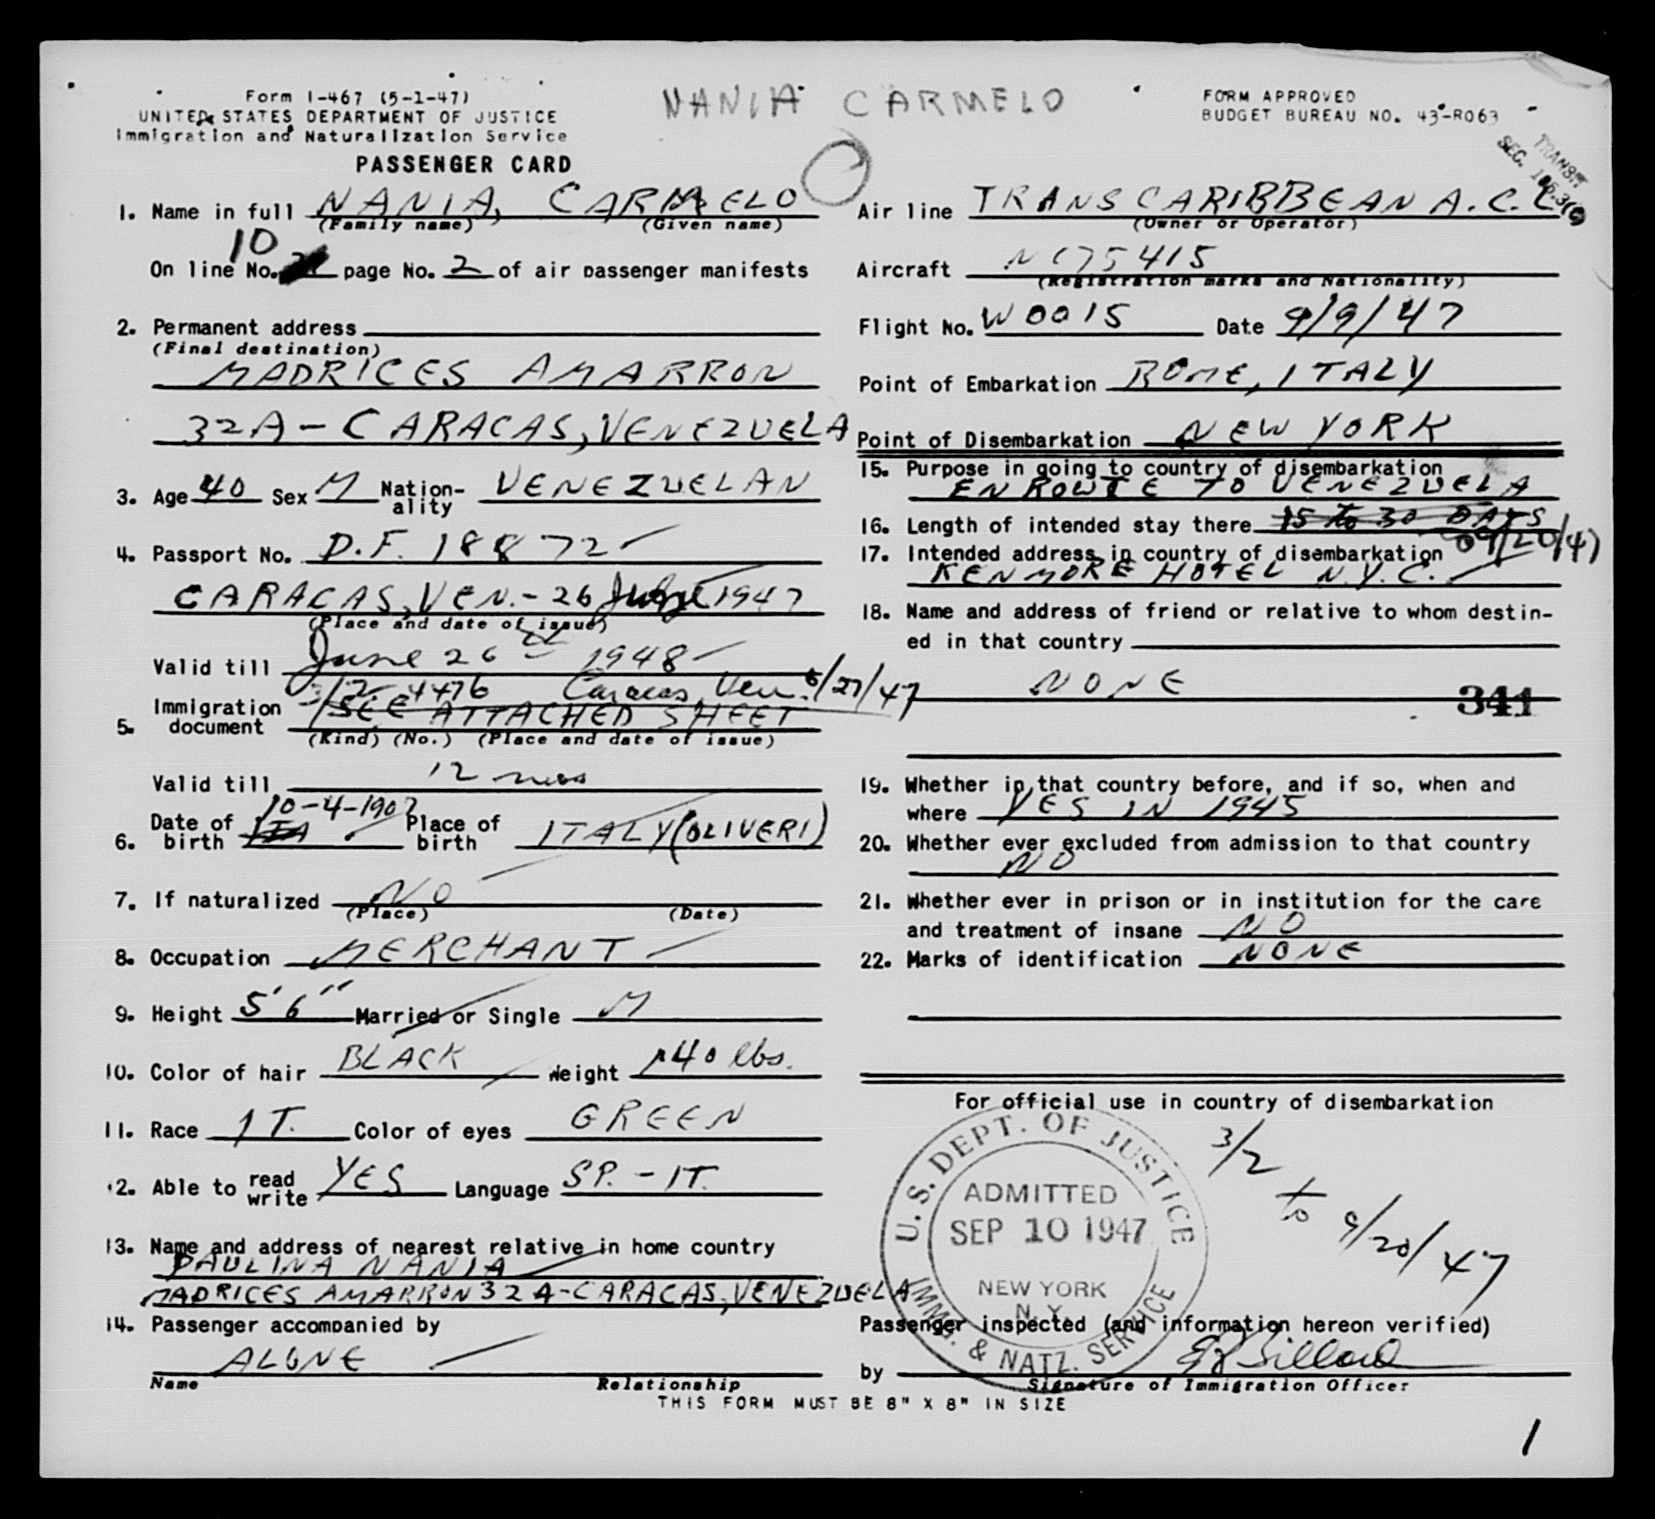 Form I-467 (5-1-47)
UNITED STATES DEPARTMENT OF JUSTICE
Immigration and Naturalization Service
PASSENGER CARD
NANIA CARMELO
FORM APPROVED
BUDGET BUREAU NO. 43-R063
TRANSIT
SEC.
1. Name in full NANIA, CARMELO
(Family name) (Given name)
10
On line No. page No. 2 of air passenger manifests
2. Permanent address
(Final destination)
MADRICES AMARRON
32A - CARACAS, VENEZUELA
3. Age 40 Sex M Nation-ality VENEZUELAN
4. Passport No. D.F. 18872
CARACAS, VEN. - 26 1947
(Place and date of issue)
Valid till June 26 1948
3/2 4476 Caracas, Ven. /27/47
5. Immigration document SEE ATTACHED SHEET
(Kind) (No.) (Place and date of issue)
Valid till 12 mos
6. Date of birth 10-4-1907 Place of birth ITALY (OLIVERI)
7. If naturalized NO
(Place) (Date)
8. Occupation MERCHANT
9. Height 5'6" Married or Single M
10. Color of hair BLACK Weight 140 lbs.
11. Race IT. Color of eyes GREEN
12. Able to read write YES Language SP. - IT.
13. Name and address of nearest relative in home country
PAULINA NANIA
MADRICES AMARRON 32A - CARACAS, VENEZUELA
14. Passenger accompanied by
ALONE
Name Relationship
Air line TRANS CARIBBEAN A.C.L.
(Owner or Operator)
Aircraft NC75415
(Registration marks and Nationality)
Flight No. W0015 Date 9/9/47
Point of Embarkation ROME, ITALY
Point of Disembarkation NEW YORK
15. Purpose in going to country of disembarkation
EN ROUTE TO VENEZUELA
16. Length of intended stay there 15 to 30 DAYS
09/20/47
17. Intended address in country of disembarkation
KENMORE HOTEL N.Y.C.
18. Name and address of friend or relative to whom destin-
ed in that country
NONE
341
19. Whether in that country before, and if so, when and
where YES IN 1945
20. Whether ever excluded from admission to that country
NO
21. Whether ever in prison or in institution for the care
and treatment of insane NO
22. Marks of identification NONE
For official use in country of disembarkation
U.S. DEPT. OF JUSTICE
ADMITTED
SEP 10 1947
NEW YORK
N.Y.
IMMG. & NATZ. SERVICE
3/2 to 9/20/47
Passenger inspected (and information hereon verified)
by
Signature of Immigration Officer
THIS FORM MUST BE 8" X 8" IN SIZE
1